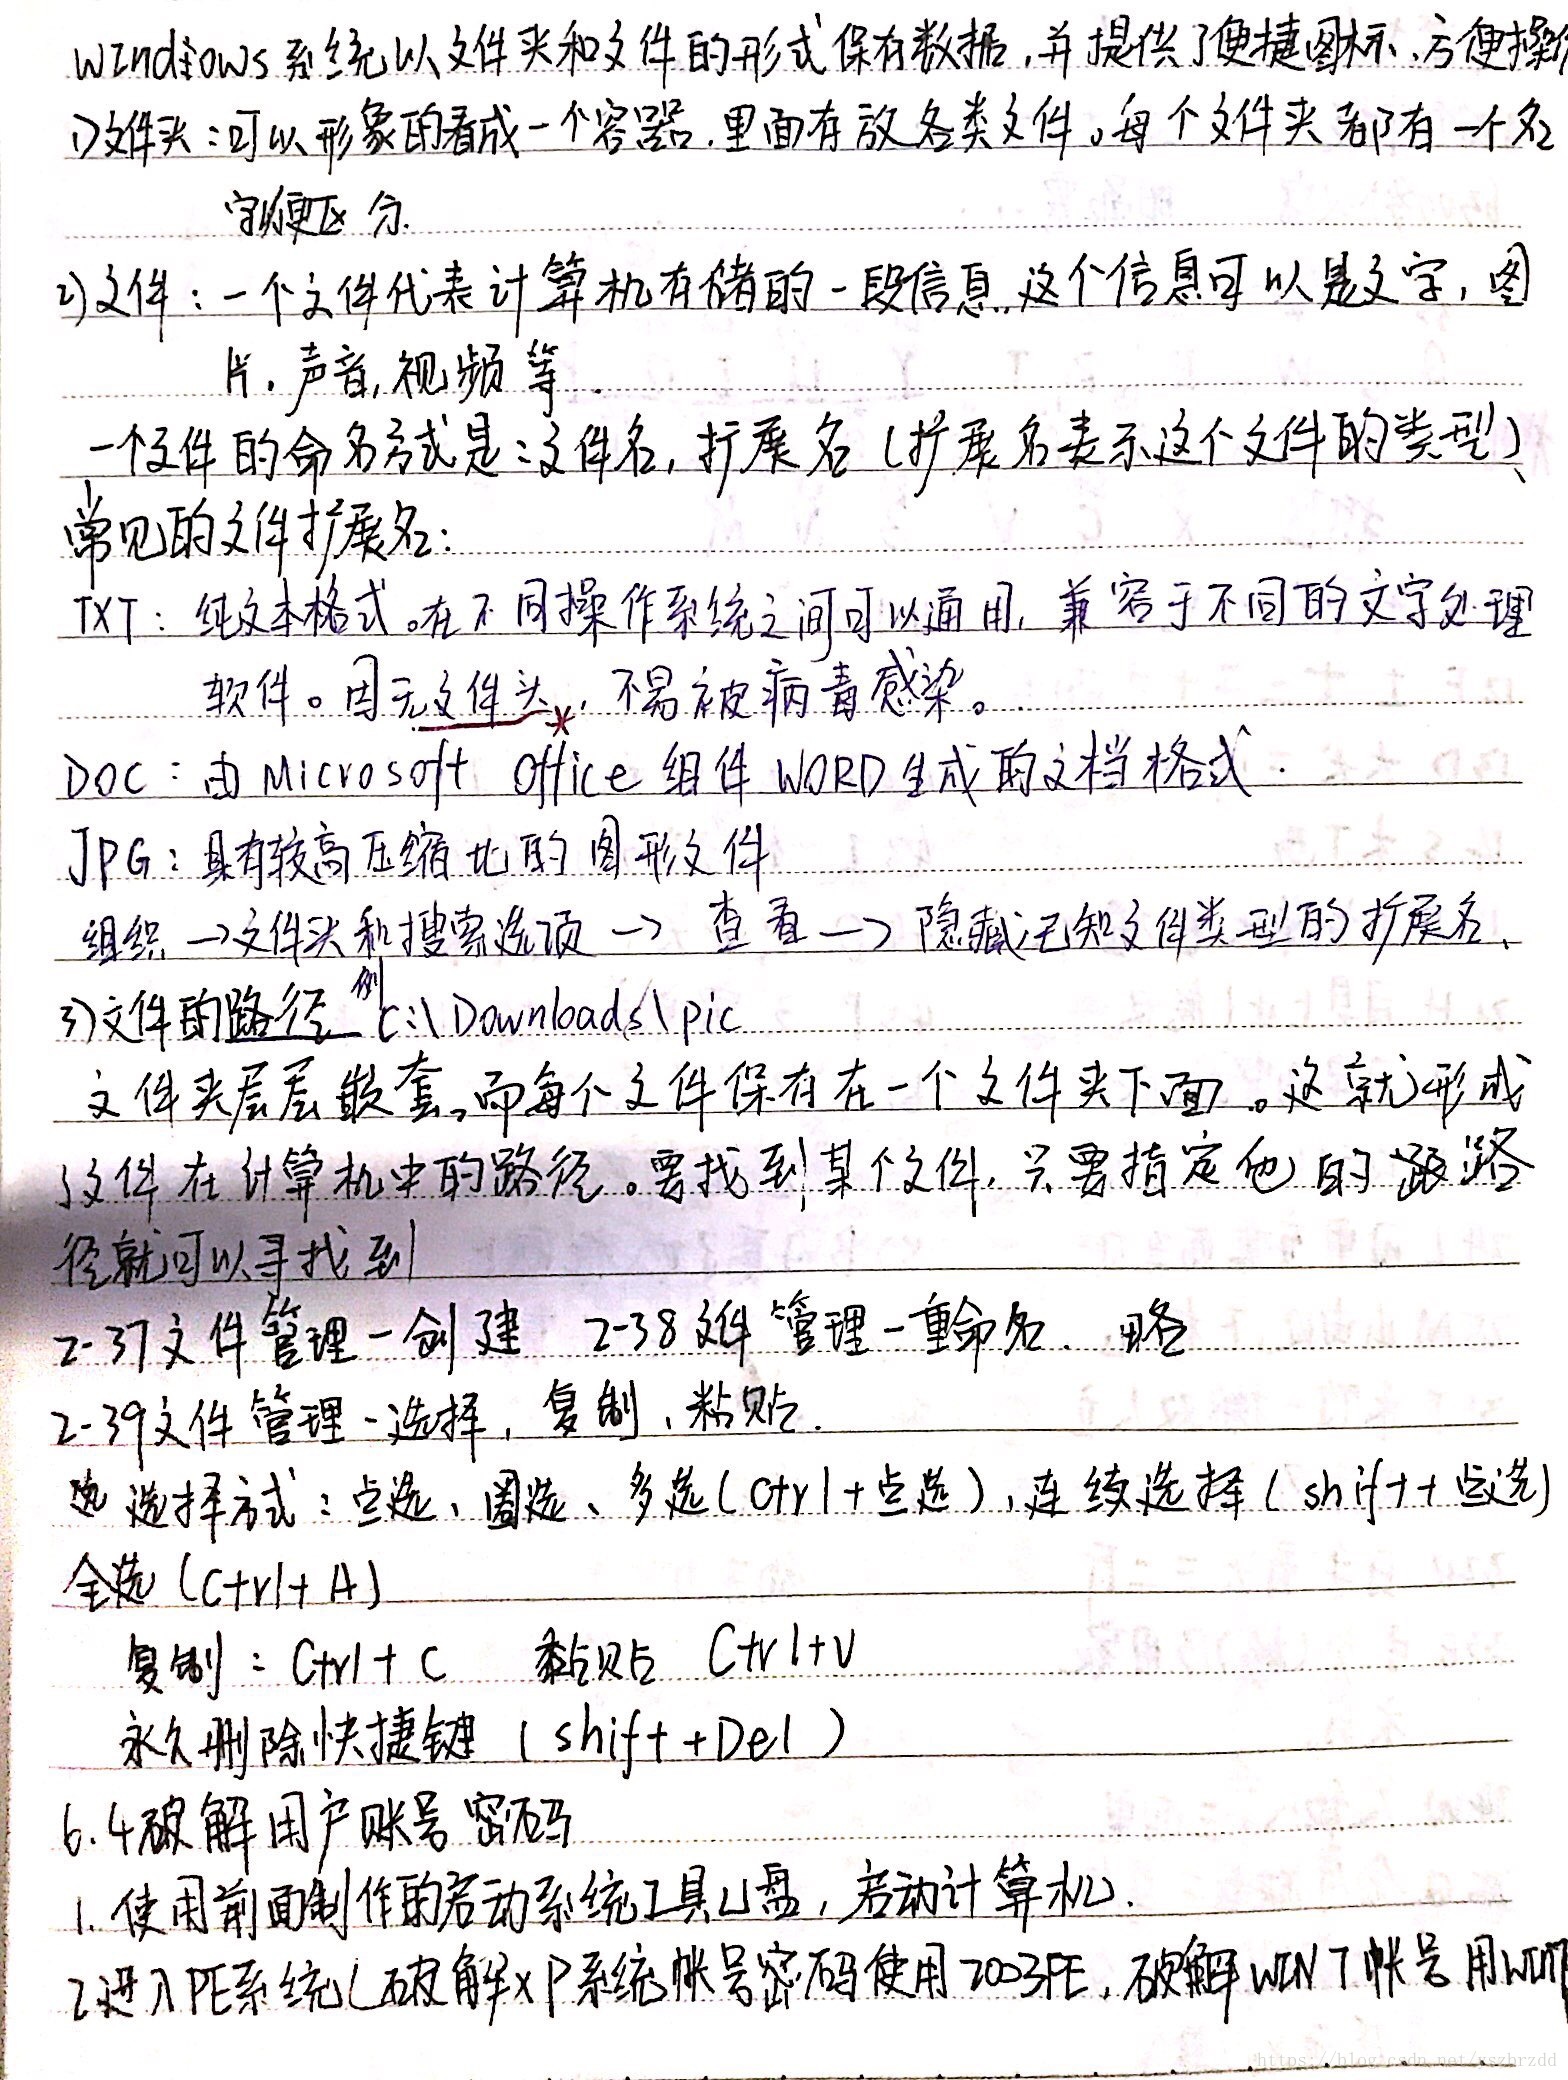 Windows系统以文件夹和文件的形式保存数据,并提供了便捷图标.方便操作
1)文件夹:可以形象的看成一个容器.里面存放各类文件。每个文件夹都有一个名
字以便区分.
2)文件:一个文件代表计算机存储的一段信息.这个信息可以是文字,图
片.声音,视频等.
一个文件的命名方式是:文件名.扩展名(扩展名表示这个文件的类型)、
常见的文件扩展名:
TXT:纯文本格式。在不同操作系统之间可以通用,兼容于不同的文字处理
软件。因无文件头,不易被病毒感染。
DOC:由Microsoft Office组件WORD生成的文档格式.
JPG:具有较高压缩比的图形文件
组织→文件夹和搜索选项→查看→隐藏已知文件类型的扩展名、
3)文件的路径 例C:\Downloads\pic
文件夹层层嵌套。而每个文件保存在一个文件夹下面。这就形成
了文件在计算机中的路径。要找到某个文件.只要指定他的路
径就可以寻找到
2-37文件管理-创建 2-38文件管理-重命名. 略
2-39文件管理-选择,复制、粘贴.
选择方式:点选、圈选、多选(Ctrl+点选),连续选择(shift+点选)
全选(Ctrl+A)
复制:Ctrl+C 黏贴 Ctrl+V
永久删除快捷键(shift+Del)
6.4破解用户账号密码
1.使用前面制作的启动系统工具U盘,启动计算机.
2.进入PE系统(破解XP系统帐号密码使用2003PE.破解WIN7帐号用WIN7
https://blog.csdn.net/xszhrzdd